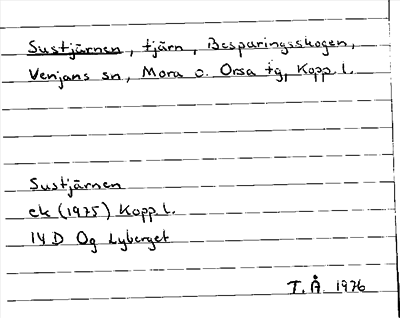 Sustjärnen, tjärn, Besparingsskogen,
Venjans sn, Mora o. Orsa tg, Kopp l.
Sustjärnen
ek (1975) Kopp l.
14 D Og Lyberget
T. Å. 1976